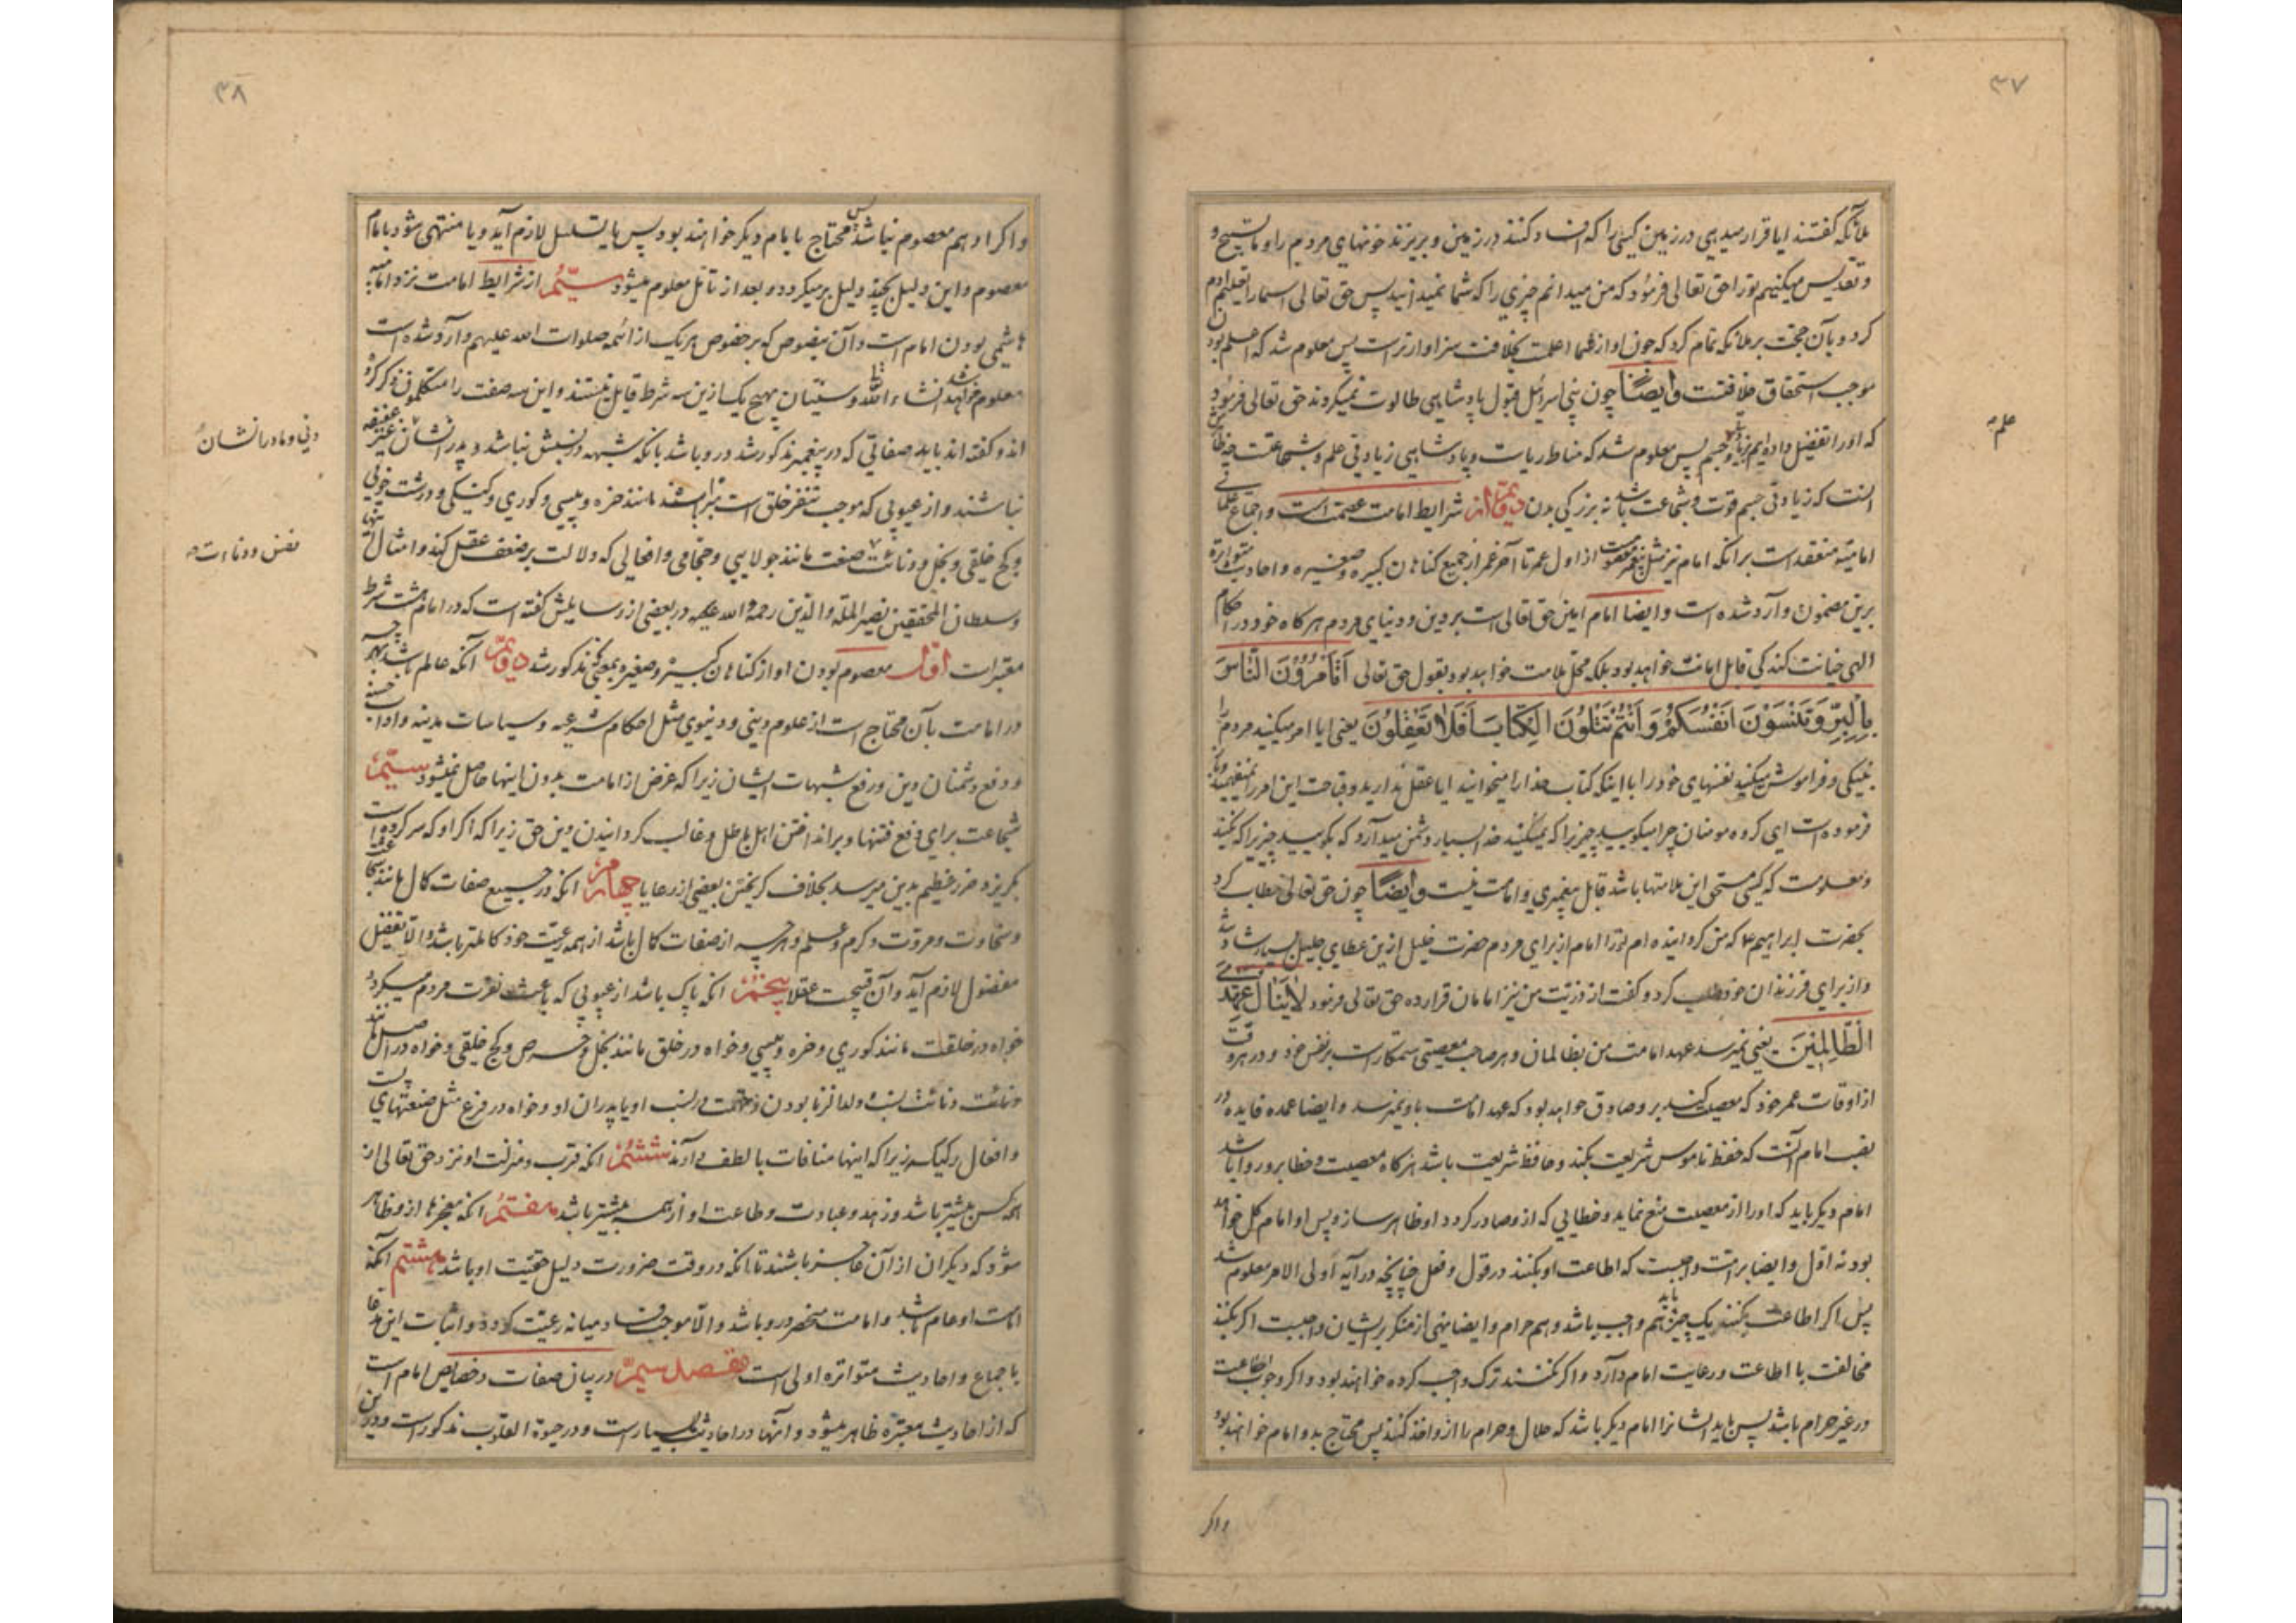 ۳۷
ملائکه کفتند ایا قرار میدهی در زمین کسی را که افساد کنند در زمین و بریزند خونهای مردم را و ما تسبیح و
و تقدیس میکنیم تو را حق تعالی فرمود که من میدانم چیزی را که شما نمیدانید پس حق تعالی اسما را تعلیم آدم
کرد و بآن حجت بر ملائکه تمام کرد که چون او از شما اعلمست بخلافت سزاوارتر است پس معلوم شد که اعلم بودن
موجب استحقاق خلافتست وایضًا چون بنی اسرائیل قبول پادشاهی طالوت نمیکردند حق تعالی فرمود
که اورا تفضیل داده ایم بزیادتی و جسم پس معلوم شد که مناط ریاست و پادشاهی زیادتی علم و شجاعتست چه ظاهر
علم
انست که زیادتی جسم قوت و شجاعت باشد نه بزرکی بدن دویم از شرایط امامت عصمت است و اجماع علمای
امامیه منعقد است برانکه امام نیز مثل پیغمبر معصومست از اول عمر تا آخر عمر از جمیع کناهان کبیره و صغیره و احادیث متواتره
برین مضمون وارد شده است وایضا امام امین حق تعالی است بر دین و دنیای مردم هر کاه خود در احکام
الهی خیانت کند کی قابل امانت خواهد بود بلکه محل ملامت خواهد بود بقول حق تعالی اَتَأمُرُوْنَ النَّاسَ
بِالْبِرِّ وَتَنْسَوْنَ اَنْفُسَکُمْ وَاَنْتُمْ تَتْلُونَ الْکِتَابَ اَفَلَا تَعْقِلُونَ یعنی ایا امر میکنید مردم را
بنیکی و فراموش میکنید نفسهای خود را با اینکه کتاب خدا را میخوانید ایا عقل ندارید و قباحت این امر را نمیفهمید و باز
فرموده است ای کروه مومنان چرا میکویید چیزیرا که نمیکنید خدا بسیار دشمن میدارد که بکویید چیزیرا که نکنید
و معلومست که کسی مستحق این ملامتها باشد قابل پیغمبری و امامت نیست وایضًا چون حق تعالی خطاب کرد
بحضرت ابراهیم ع که من کردانیده ام تو را امام از برای مردم حضرت خلیل ازین عطای جلیل بسیار شاد شد
و از برای فرزندان خود طلب کرد و کفت از ذریت من نیز امامان قرار ده حق تعالی فرمود لَا یَنَالُ عَهْدِی
الظَّالِمِیْنَ یعنی نمیرسد عهد امامت من بظالمان و هر صاحب معصیتی ستمکار است بر نفس خود و در هر وقت
از اوقات عمر خود که معصیت کند بر او صادق خواهد بود که عهد امامت باو نمیرسد وایضا عمده فایده در
نصب امام آنست که حفظ ناموس شریعت بکند و حافظ شریعت باشد هر کاه معصیت و خطا برو روا باشد
امام دیکر باید که اورا از معصیت منع نماید و خطایی که ازو صادر کردد او ظاهر سازد پس او امام کل خواهد
بود نه اول وایضا بر امت واجبست که اطاعت او بکنند در قول و فعل چنانچه در آیه اولی الامر معلوم شد
پس اکر اطاعت بکنند باید یک چیز هم واجب باشد و هم حرام وایضا نهی از منکر بر ایشان واجبست اکر بکنند
مخالفت با اطاعت و رعایت امام دارد و اکر نکنند ترک واجب کرده خواهند بود و اکر وجوب اطاعت
در غیر حرام باشد پس باید ایشانرا امام دیکر باشد که حلال و حرام را ازو اخذ کنند پس محتاج بدو امام خواهند بود
واکر
۳۸
واکر او هم معصوم نباشد پس محتاج بامام دیکر خواهند بود پس یا تسلسل لازم آید و یا منتهی شود بامام
معصوم و این دلیل بچند دلیل برمیکردد و بعد از تأمل معلوم میشود سیّم از شرایط امامت نزد امامیه
هاشمی بودن امام است و آن بنصوص که بر خصوص هر یک از ائمه صلوات الله علیهم وارد شده است
معلوم خواهد شد انشاء الله تعالی و سنیان بهیچ یک ازین سه شرط قایل نیستند و این سه صفت را متکلمون ذکر کرده
اند و کفته اند باید صفاتی که در پیغمبر مذکور شد در او باشد بانکه شبهه در نسبش نباشد و پدرانشان غیر عفیفه
دنی و مادرانشان
نباشند و از عیوبی که موجب تنفر خلق است مبرا باشند مانند خوره و پیسی و کوری و کنکی و درشت خویی
و کج خلقی و بخل و دنائت صنعت مانند جولایی و حجامی و افعالی که دلالت بر ضعف عقل کند و امثال اینها
نفس و دناءت
و سلطان المحققین نصیر الملة والدین رحمة الله علیه در بعضی از رسایلش کفته است که در امام هشت شرط
معتبر است اوّل معصوم بودن او از کناهان کبیره و صغیره بمعنی که مذکور شد دویّم آنکه عالم باشد بهر چه
در امامت بآن محتاج است از علوم دینی و دنیوی مثل احکام شرعیه و سیاسات مدینه و اداب حسنه
و دفع دشمنان دین و رفع شبهات ایشان زیرا که غرض از امامت بدون اینها حاصل نمیشود سیّم
شجاعت برای دفع فتنها و برانداختن اهل باطل و غالب کردانیدن دین حق زیرا که اکر او که سر کرده است
بکریزد ضرر عظیم بدین میرسد بخلاف کریختن بعضی از رعایا چهارم انکه در جمیع صفات کمال مانند شجاعت
و سخاوت و مروّت و کرم و علم و هر چه از صفات کمال باشد از همه رعیّت خود کاملتر باشد والا تفضیل
مفضول لازم آید و آن قبیحست عقلا پنجم انکه پاک باشد از عیوبی که باعث نفرت مردم میکردد
خواه در خلقت مانند کوری و خوره و پیسی و خواه در خلق مانند بخل و حرص و کج خلقی و خواه در اصل مانند
دنائت نسب و ولد الزنا بودن و تهمت در نسب او یا پدران او و خواه در فرع مثل صنعتهای پست
و افعال رکیکه زیرا که اینها منافات با لطف دارند ششم انکه قرب و منزلت او نزد حق تعالی از
همه کس بیشتر باشد و زهد و عبادت و طاعت او از همه بیشتر باشد هفتم انکه معجزها ازو ظاهر
شود که دیکران از آن عاجز باشند تا انکه در وقت ضرورت دلیل حقیّت او باشد هشتم آنکه
امامت او عام باشد و امامت منحصر در او باشد والّا موجب فساد میانه رعیّت کردد و اثبات این مدعا
باجماع و احادیث متواتره اولی است فصل سیّم در بیان صفات و خصایص امام است
که از احادیث معتبره ظاهر میشود و آنها در احادیث بسیار است و در حیوة القلوب مذکور است و درین